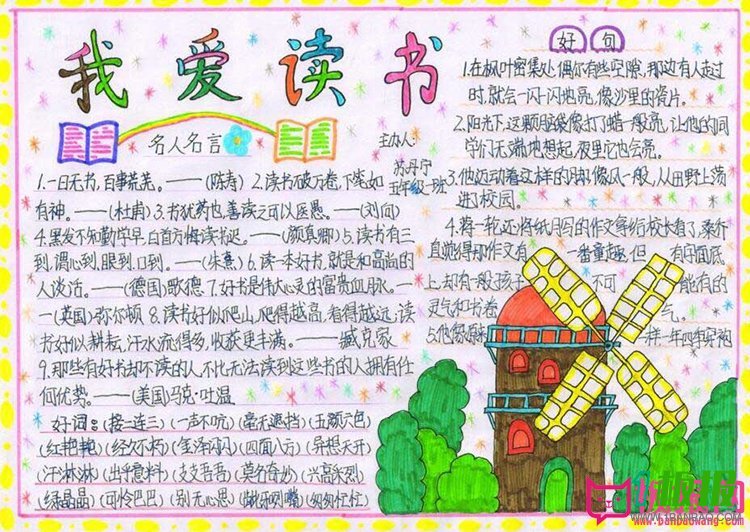 我爱读书
名人名言
主办人:
苏丹宁
五年级一班
1.一日无书,百事荒芜。——(陈寿) 2.读书破万卷,下笔如
有神。——(杜甫) 3.书犹药也,善读之可以医愚。——(刘向)
4.黑发不知勤学早,白首方悔读书迟。——(颜真卿) 5.读书有三
到,谓心到,眼到,口到。——(朱熹) 6.读一本好书,就是和高尚的
人谈话。——(德国)歌德 7.好书是伟大心灵的富贵血脉。—
—(英国)弥尔顿 8.读书好似爬山,爬得越高,看得越远;读
书好似耕耘,汗水流得多,收获更丰满。——臧克家
9.那些有好书却不读的人,不比无法读到这些书的人拥有任
何优势。——(美国)马克·吐温
好词:(接二连三)(一声不吭)(毫无遮挡)(五颜六色)
(红艳艳)(经久不朽)(金泽闪闪)(四面八方)(异想天开)
(汗淋淋)(出乎意料)(支支吾吾)(莫名奇妙)(兴高采烈)
(绿晶晶)(可怜巴巴)(别无心思)(匆匆忙忙)
好句
1.在枫叶密集处,偶尔有些空隙,那边有人走过
时,就会一闪一闪地亮,像沙里的瓷片。
2.阳光下,这颗脑袋像打了蜡一般亮,让他的同
学们无端地想起,夜里它也会亮。
3.他迈动着这样的脚像风一般,从田野上荡
进了校园。
4.蒋一轮还将纸月写的作文拿给校长看了,桑乔
直觉得那作文有 一番童趣,但 有字面底
上,却有一般孩子 不可 能有的
灵气和书卷 气。
5.他像原 样一年四季穿的
www.banbaowang.com